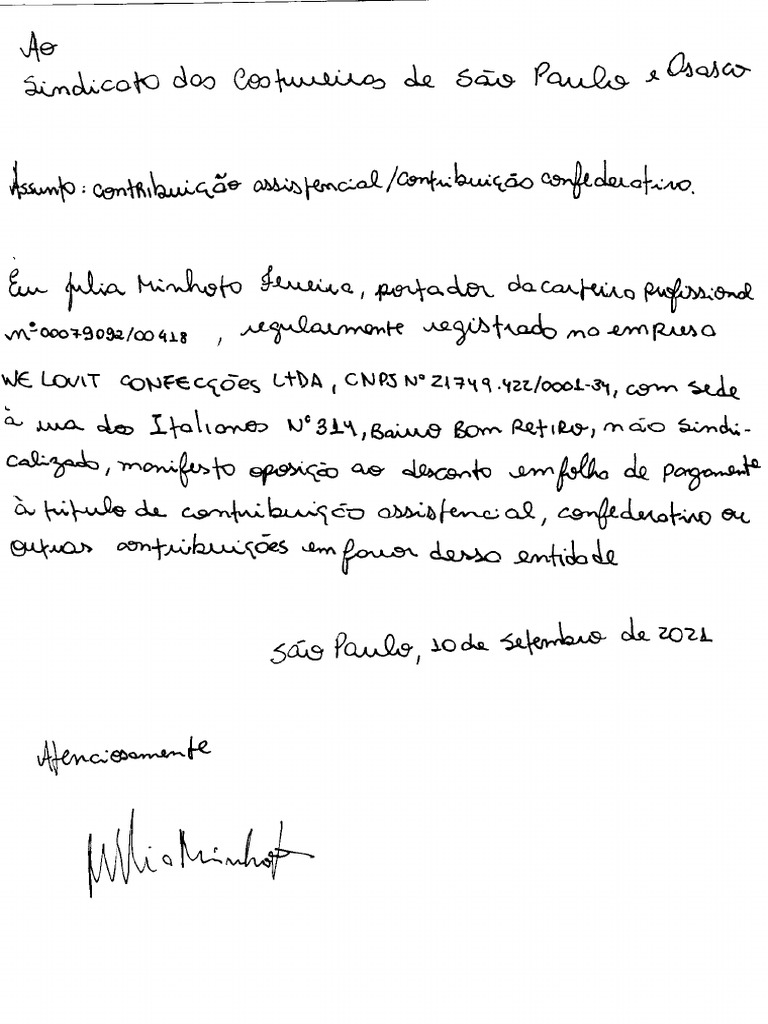 Ao
Sindicato das Costureiras de São Paulo e Osasco
Assunto: contribuição assistencial/contribuição confederativa.
Eu Julia Minhoto Ferreira, portador da carteira profissional
nº 00079092/00418, regularmente registrado na empresa
WE LOVIT CONFECÇÕES LTDA, CNPJ Nº 21749.422/0001-34, com sede
à rua dos Italianos Nº 314, Bairro Bom Retiro, não sindi-
calizado, manifesto oposição ao desconto em folha de pagamento
à título de contribuição assistencial, confederativa ou
outras contribuições em favor dessa entidade
São Paulo, 10 de setembro de 2021
Atenciosamente
Júlia Minhoto